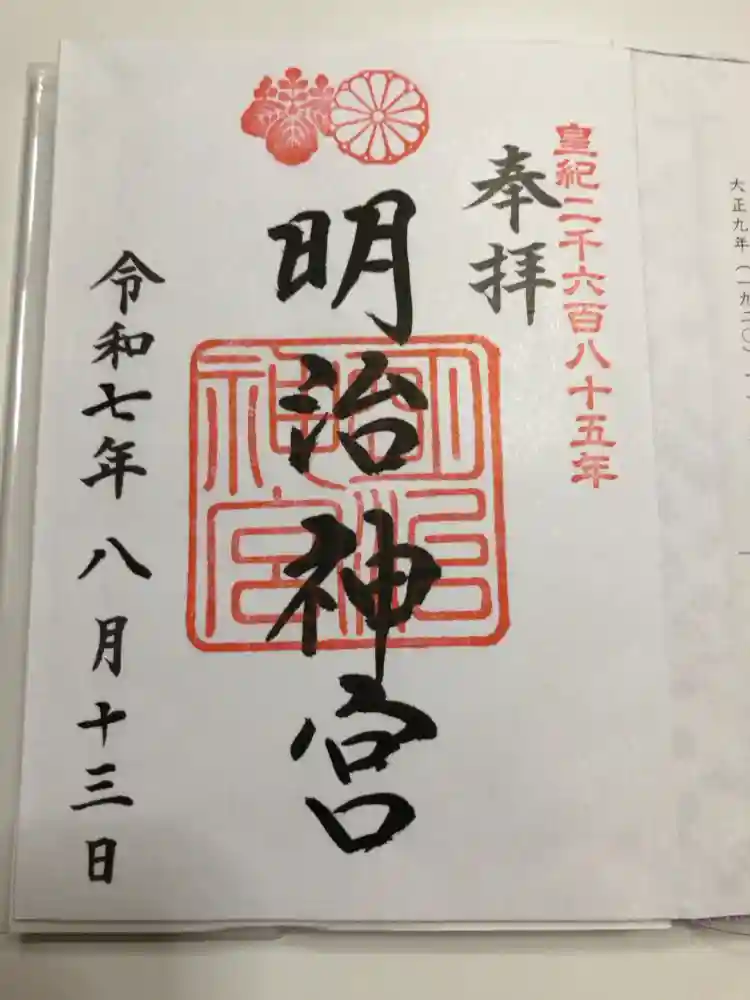 大正九年(一九二〇)
皇紀二千六百八十五年
奉拝
明治神宮
明治神宮
令和七年八月十三日